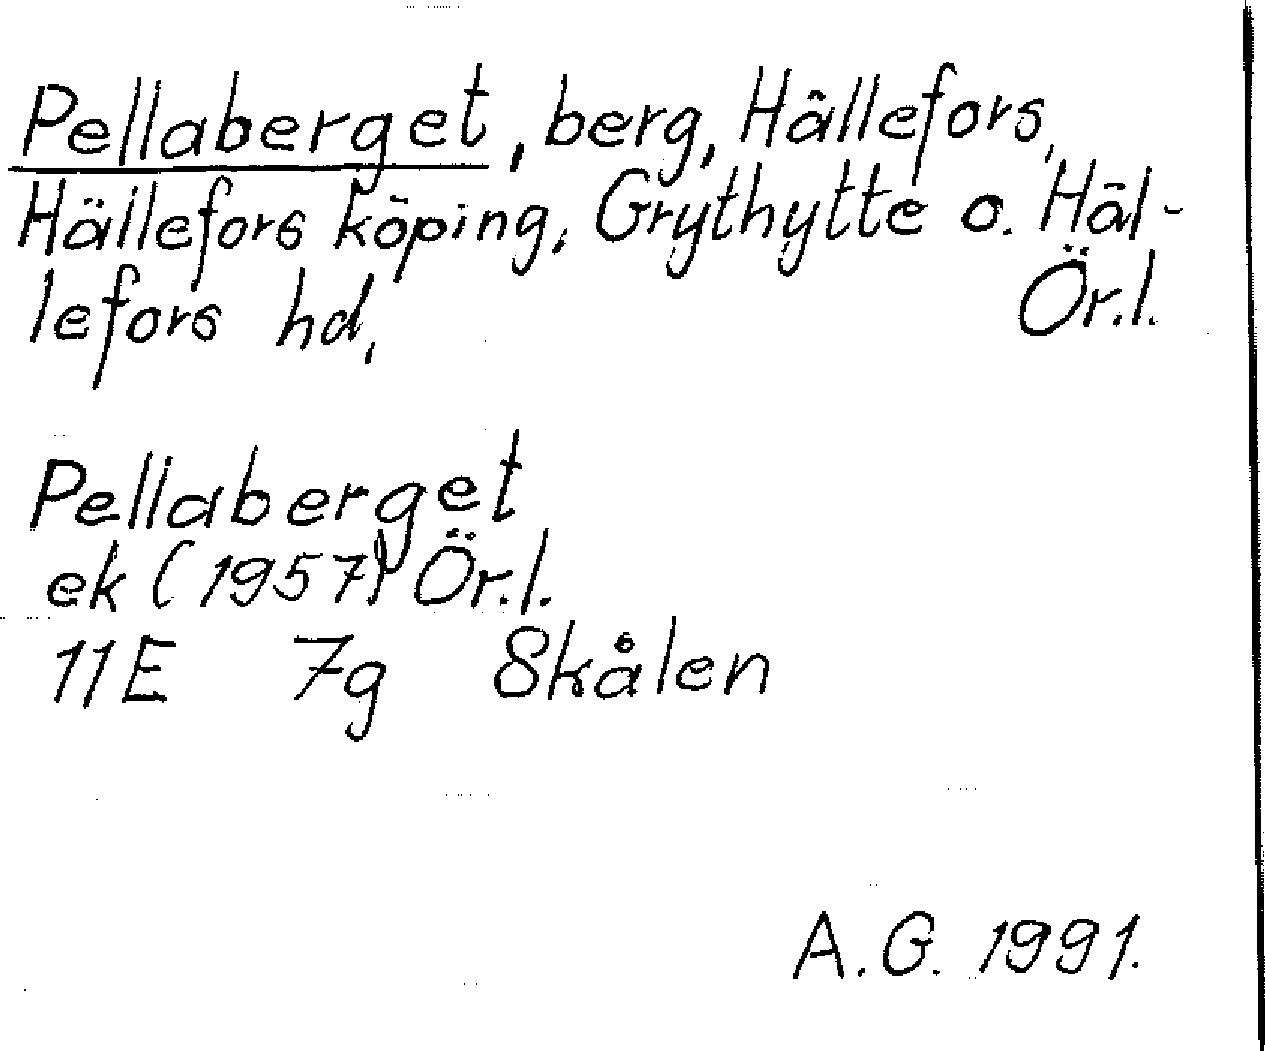 Pellaberget, berg, Hällefors,
Hällefors köping, Grythytte o. Häl-
lefors hd,
Ör.l.
Pellaberget
ek (1957) Ör.l.
11E 7g Skålen
A.G. 1991.